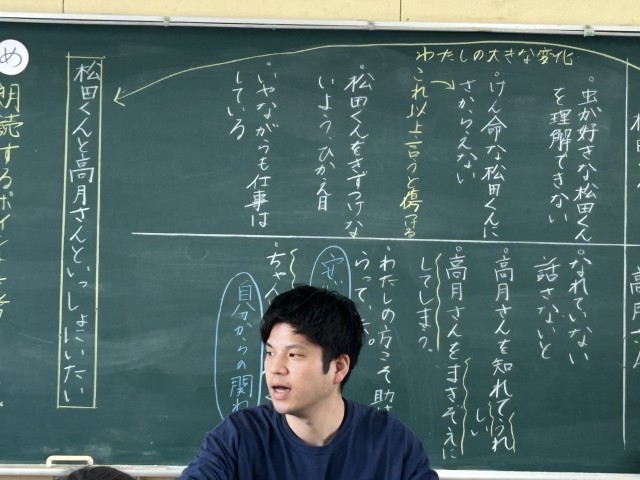 わたしの大きな変化
・虫が好きな松田くん
を理解できない
・けん命な松田くんに
さからえない
これ以上言うと傷つける
・松田くんをきずつけな
いよう、ひかえ目
・いやながらも仕事は
している
高月さん
・なれていない
話さないと
・高月さんを知れてうれ
しい
・高月さんをまきぞえに
してしまう。
・わたしの方こそ助け
らっていた。
・ちゃん
自分からの関わ
松田くんと高月さんといっしょにいたい
め
朗読するポイントを考